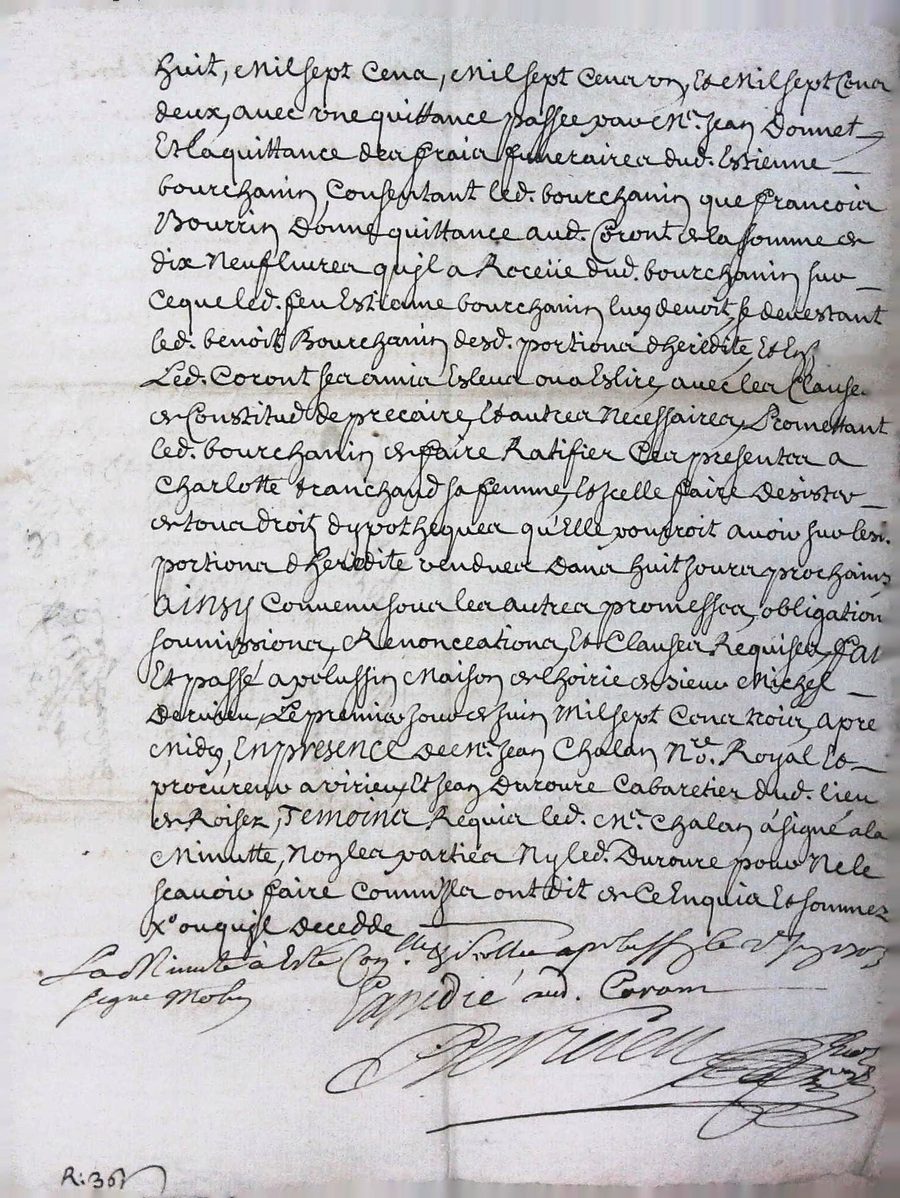 huit, Mil sept Cens, Mil sept Cens un, Et Mil sept Cens
deux, avec une quittance passée par Me. Jean Donnet
Et la quittance des frais funeraires dud. Estienne
bourchanin, Consentant led. bourchanin que françois
Bourrin Donne quittance aud. Coront de la somme de
dix Neuf livres quil a Receüe dud. bourchanin sur
Ceque led. feu Estienne bourchanin luy devoit, se devestant
led. benoit Bourchanin desd. portions d'heredité, Et En
Led. Coront ses amis Esleus ou a Eslire, avec les Clauses
de Constitud. de precaire, Et autres Necessaires, Promettant
led. bourchanin de faire Ratifier Ces presentes a
Charlotte tranchand sa femme, Et Icelle faire Desister
de tous droits dypotheques qu'Elle pourroit avoir sur lesd.
portions d'heredité vendues Dans huit Jours prochains
Ainsy Convenu sous les autres promesses, obligations
soumissions, Renonceations, Et Clauses Requises, fait
Et passé a pelussin Maison de lhoirie de sieur Michel
Dervieu, Le premier Jour de Juin, Mil sept Cens trois, apres
Midy, En presence De Me. Jean Chalan Nre. Royal Et
procureur a virieu, Et Jean Duroure Cabaretier dud. lieu
de Roisez, Temoins Requis led. Me. Chalan à signé a la
Minutte, Non les parties Ny led. Duroure pour Ne le
scavoir faire Comm'Ils ont dit de Ce Enquis Et sommez
Xo. ou quil Decedde
La Minute à Esté Con.llée & scellée a peluss. le
signé
Expedié aud. Coront
Dervieu
R: 36